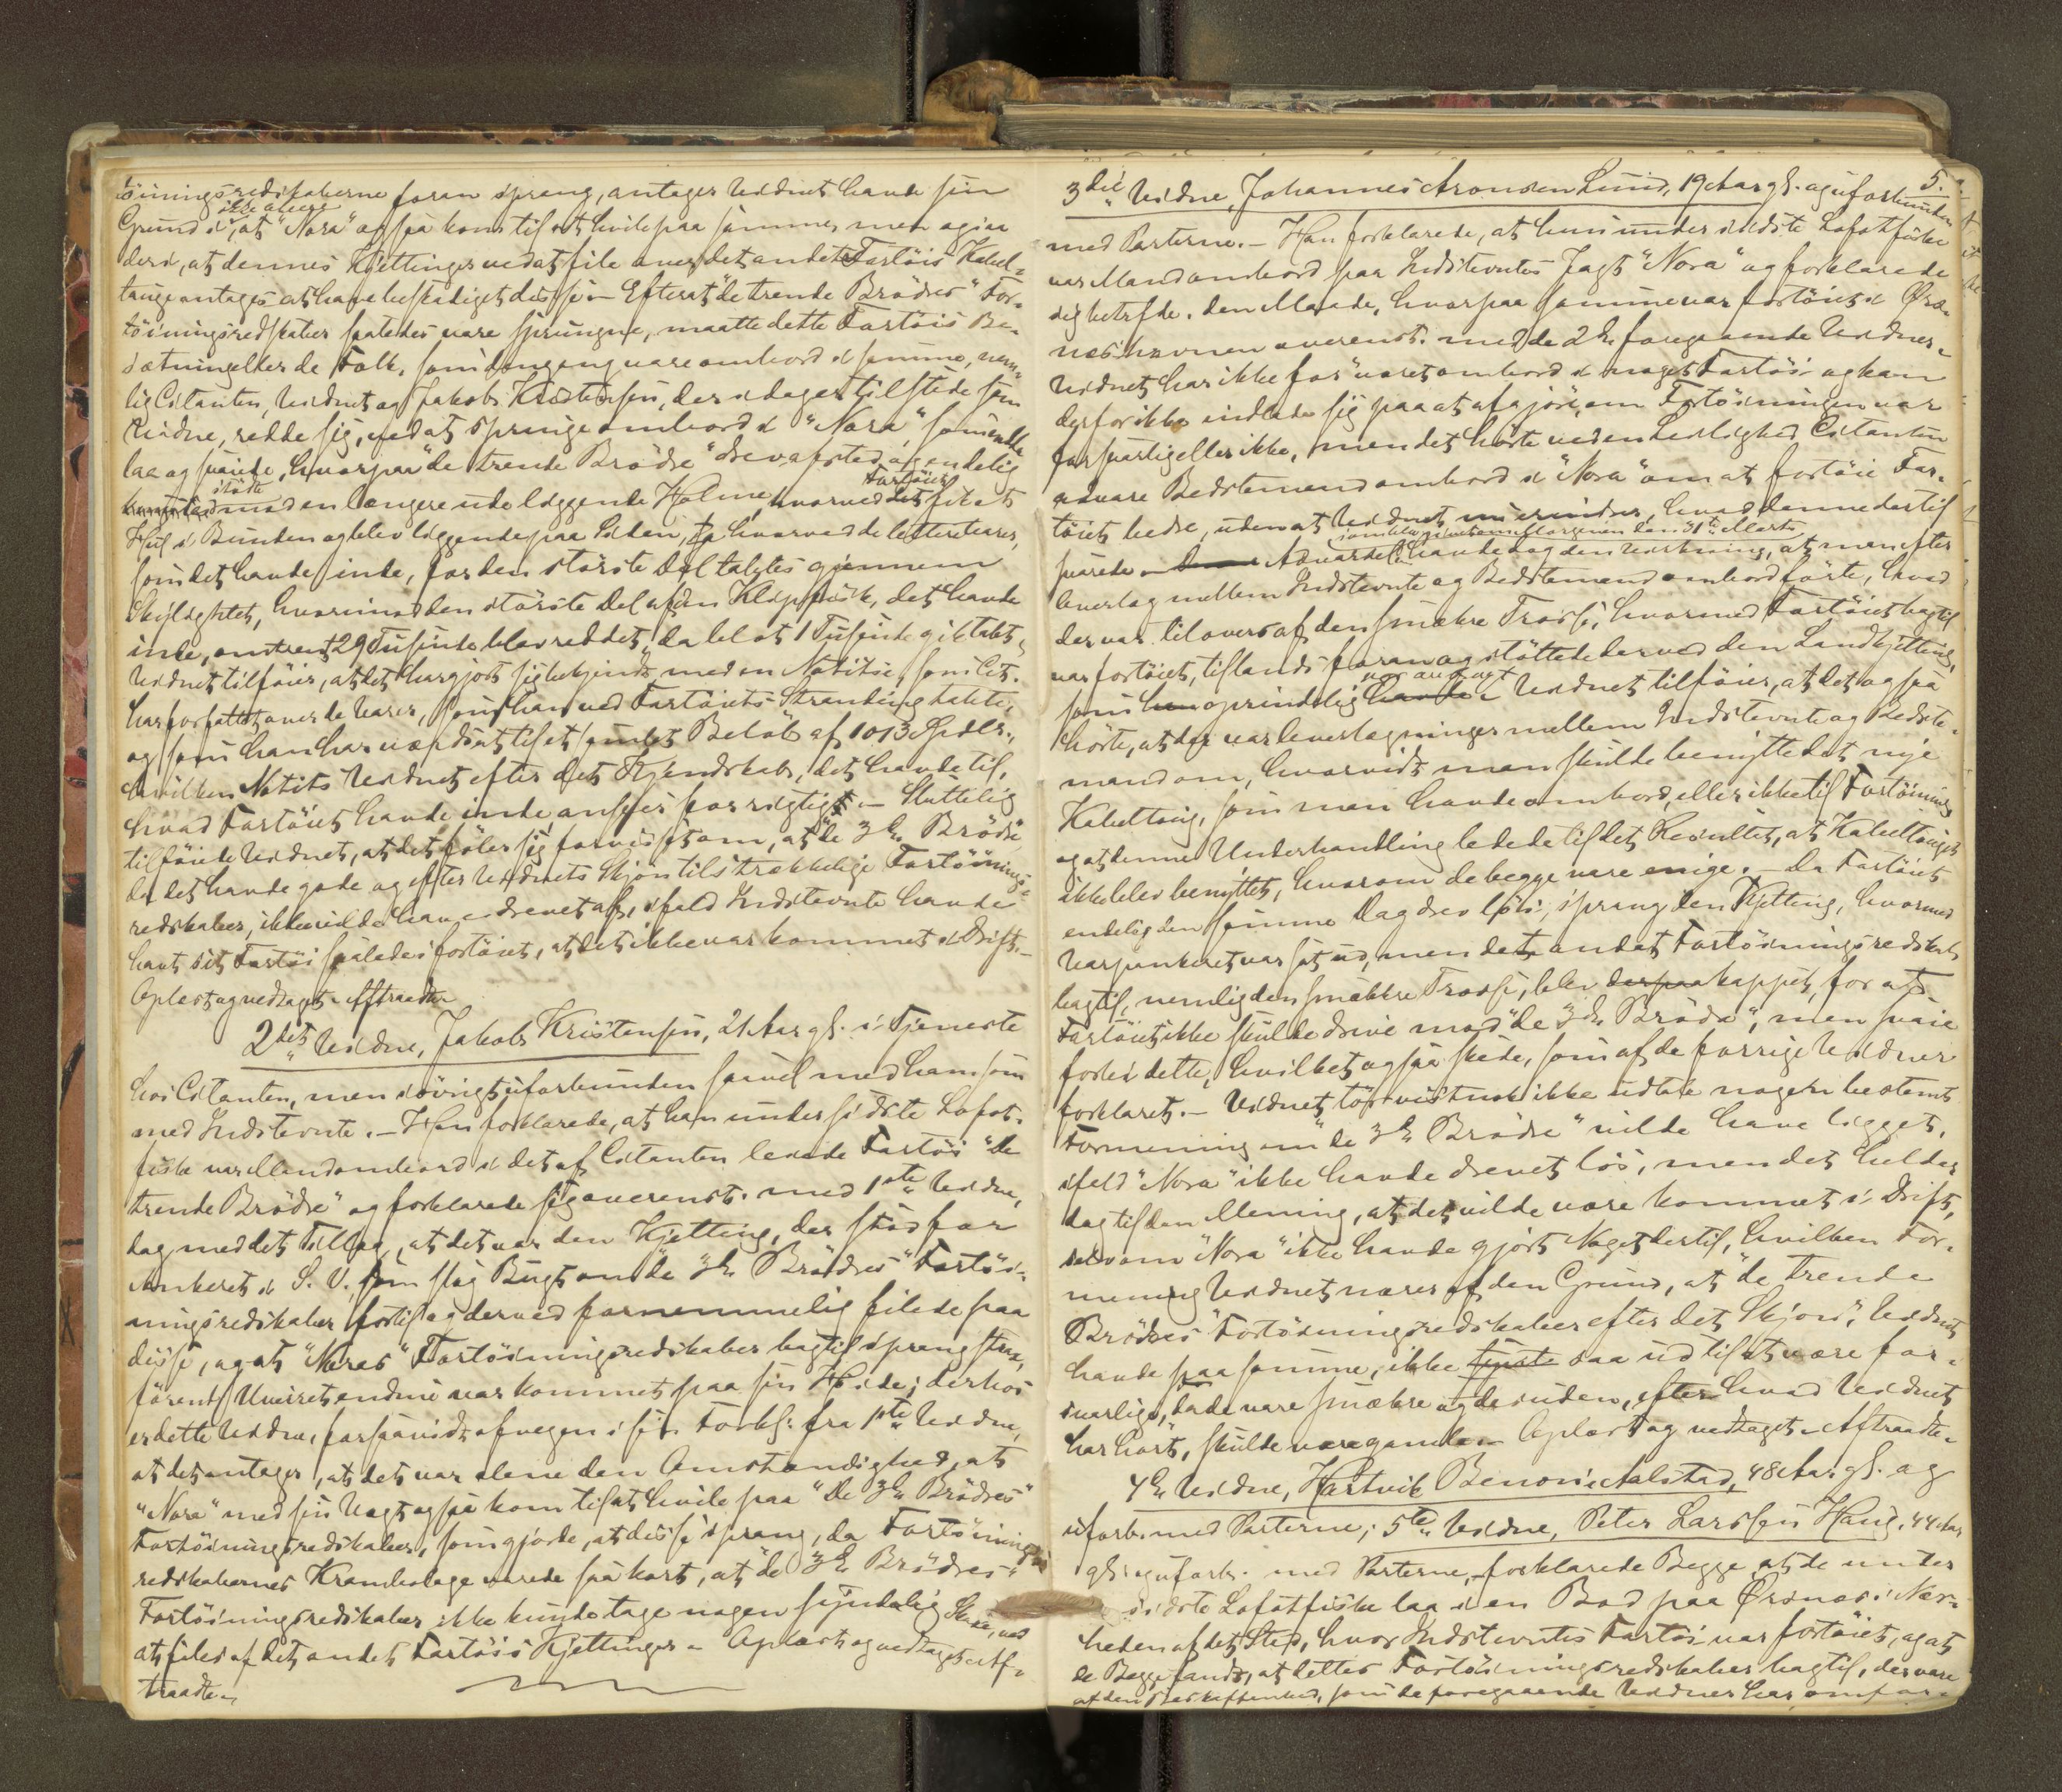 töiningsredskaberne foran sprang, antager Vidnet havde sin
Grund i ikke alene, at "Nora" ogsaa kom til at hvile paa samme, men ogsaa
deri, at dennes Kjettinger ved at file over det andet Fartöis Kabel-
tauge antages at have beskadiget disse. – Efterat "de trende Brödres" For-
töiningsredskaber saaledes vare sprungne, maatte dette Fartöis Be-
sætning eller de Folk, som dengang vare ombord i samme, nem-
lig Citanten, Vidnet og Jakob Kristensen, der idag er tilstede som
Vidne, redde sig, ved at springe ombord i "Nora" som endnu
laa og svaiede, hvorpaa "de trende Brödre" drev afsted, og endelig
stödte mod en længere ude liggende Holme, hvorved Fartöiet fik et
Hul i Bunden og blev liggende paa Siden, hvorved de lettere Varer,
som det havde inde, for den störste Del taltes gjennem
Skylightet, hvorimod den störste Del af den Klipfisk, det havde
inde, omtrent 29 Tusinde blev reddet, da blot 1 Tusinde gik tabt.
Vidnet tilföier, at det har gjort sig bekjendt med en Notitse, som Cit.
har forfattet over de Varer, som han ved Fartöiets Stranding tabte,
og som han har værdsat til et samlet Belöb af 1013 Spdlr.,
hvilken Notits Vidnet efter det Kjendskab, det havde til,
hvad Fartöiet havde inde anser for rigtigt. – Sluttelig
tilföiede Vidnet, at det föler sig forvisset om, at "de 3de Brödre"
da det havde gode og efter Vidnets Skjön tilstrækkelige Fortöinings-
redskaber, ikke vilde have drevet af, ifald Indstevnte havde
havt sit Fartöi saaledes fortöiet, at det ikke var kommet i Drift. –
Oplæst og vedtaget. Aftraadte.
2det Vidne, Jakob Kristensen, 21 Aar gl. i Tjeneste
hos Citanten, men iövrigt uforbunden saavel med ham som
med Indstevnte. – Han forklarede, at han under sidste Lofot-
fiske var Mand ombord i det af Citanten leiede Fartöi "de
trende Brödre" og forklarede sig overenst. med 1ste Vidne,
dog med det Tillæg, at det var den Kjetting, der stod for
Ankeret i S. V., som slog Bugt om "de 3de Brödres" Fortöi-
ningsredskaber fortil og derved fornemmelig filede paa
disse, og at "Noras" Fortöiningsredskaber bagtil sprang strax,
förend Uveiret endnu var kommet paa sin Höide; derhos
er dette Vidne, forsaavidt afvegen i sin Forkl. fra 1ste Vidne,
at det antager, at det var alene den Omstændighed, at
"Nora" med sin Vægt ogsaa kom til at hvile paa "de 3de Brödres"
Fortöiningsredskaber, som gjorde, at disse sprang, da Fortöinings-
redskabernes varede saa kort, at "de 3de Brödres"
Fortöiningsredskaber ikke kunde tage nogen synderlig Skade, ved
at files af det andet Fartöis Kjettinger. – Oplæst og vedtaget. Af-
traadte.
5.
3die Vidne, Johannes Aronsen Lund, 19 Aar gl. og uforbunden
med Parterne. – Han forklarede, at han under sidste Lofotfiske
var Mand ombord paa Indstevntes Jagt "Nora" og forklarede
sig betrfde. den Maade, hvorpaa samme var fortöiet i Örs-
næshavnen overenst. med de 2de foregaaende Vidner. –
Vidnet har ikke för været ombord i noget Fartöi og kan
derfor ikke indlade sig paa at afgjöre, om Fortöiningen var
forsvarlig eller ikke, men det hörte ved en Leilighed Citanten
advare Bedstemand ombord i "Nora" om at fortöie Far-
töiet bedre, uden at Vidnet erindrer, hvad denne dertil
svarede. – Advarselen, som blev givet om Morgenen den 1ste Marts, havde dog den Virkning, at man efter
Overlæg mellem Indstevnte og Bedstemand ombord förte, hvad
der var tilovers af den smækre Trosse, hvormed Fartöiet bagtil
var fortöiet, tillands foran og stöttede derved den Landkjetting,
som oprindelig var anbragt. Vidnet tilföier, at det ogsaa
hörte, at der var Overlægninger mellem Indstevnte og Bedste-
mand om, hvorvidt man skulde benytte det nye
Kabeltoug, som man havde ombord, eller ikke til Fortöining
og at denne Underhandling ledede til det Resultat, at Kabeltouget
ikke blev benyttet, hvorom de begge vare enige. – Da Fartöiet
endelig den samme Dag drev lös, sprang den Kjetting, hvormed
Varpankeret var sat ud, men det andet Fortöiningsredskab
bagtil, nemlig den smækkre Trosse, blev derpaa kappet, for at
Fartöiet ikke skulde drive mod "de 3de Brödre", men svaie
forbi dette, hvilket ogsaa skede, som af de forrige Vidner
forklaret. – Vidnet tör vistnok ikke udtale nogen bestemt
Formening om "de 3de Brödre" vilde have ligget,
ifald "Nora" ikke havde drevet lös, men det helder
dog til den Mening, at det vilde være kommet i Drift,
selvom "Nora" ikke havde gjort Noget dertil, hvilken For-
mening Vidnet nærer af den Grund, at "de trende
Brödres" Fortöiningsredskaber efter det Skjön, Vidnet
havde paa samme, ikke saa ud til at være for-
svarlige, da de vare smækre og desuden, efter hvad Vidnet
har hört, skulde være gamle. – Oplæst og vedtaget. Aftraadte. –
4de Vidne, Hartvik Benoni Aalstad, 48 Aar gl. og
uforb. med Parterne; 5te Vidne, Peter Larssen Haug, 44 Aar
gl. og uforb. med Parterne, forklarede Begge, at de under
sidste Lofotfiske laa i en Bod paa Örsnæs i Nær-
heden af det Sted, hvor Indstevntes Fartöi var fortöiet, og at
de Begge fandt, at dettes Fortöiningsredskaber bagtil, der vare
af den Beskaffenhed, som de foregaaende Vidner har omfor-